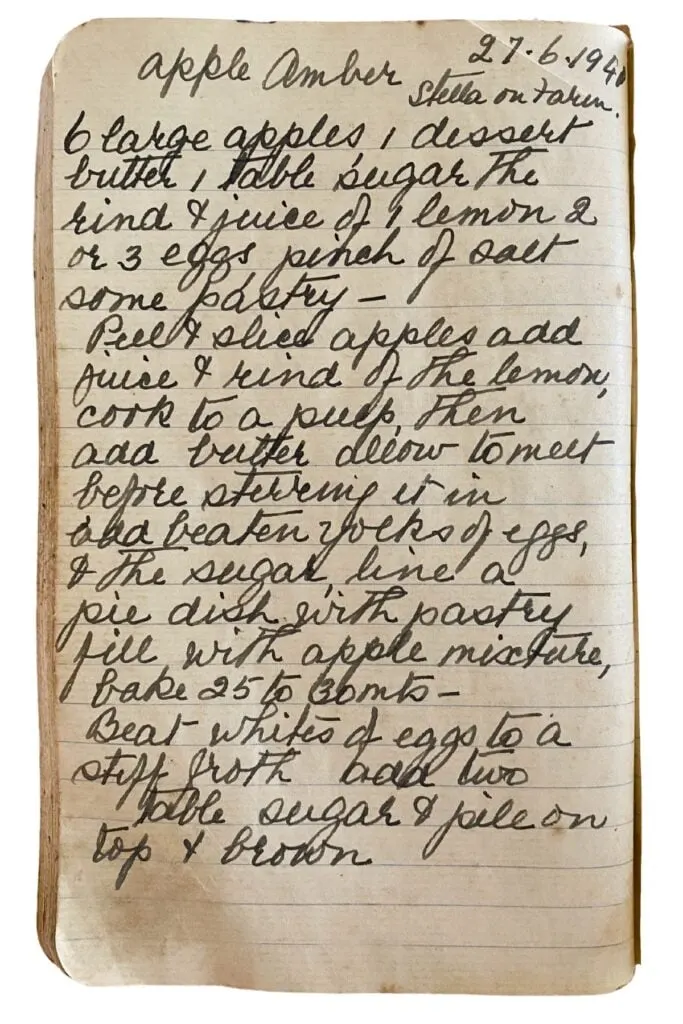 27.6.194
apple Amber
Stella on Farm.
6 large apples 1 dessert
butter 1 table sugar The
rind & juice of 1 lemon 2
or 3 eggs pinch of salt
some pastry –
Peel & slice apples add
juice & rind of the lemon,
cook to a pulp, then
add butter allow to melt
before stirring it in
add beaten yolks of eggs,
& the sugar, line a
pie dish with pastry
fill with apple mixture,
bake 25 to 30 mts –
Beat whites of eggs to a
stiff froth add two
table sugar & pile on
top & brown